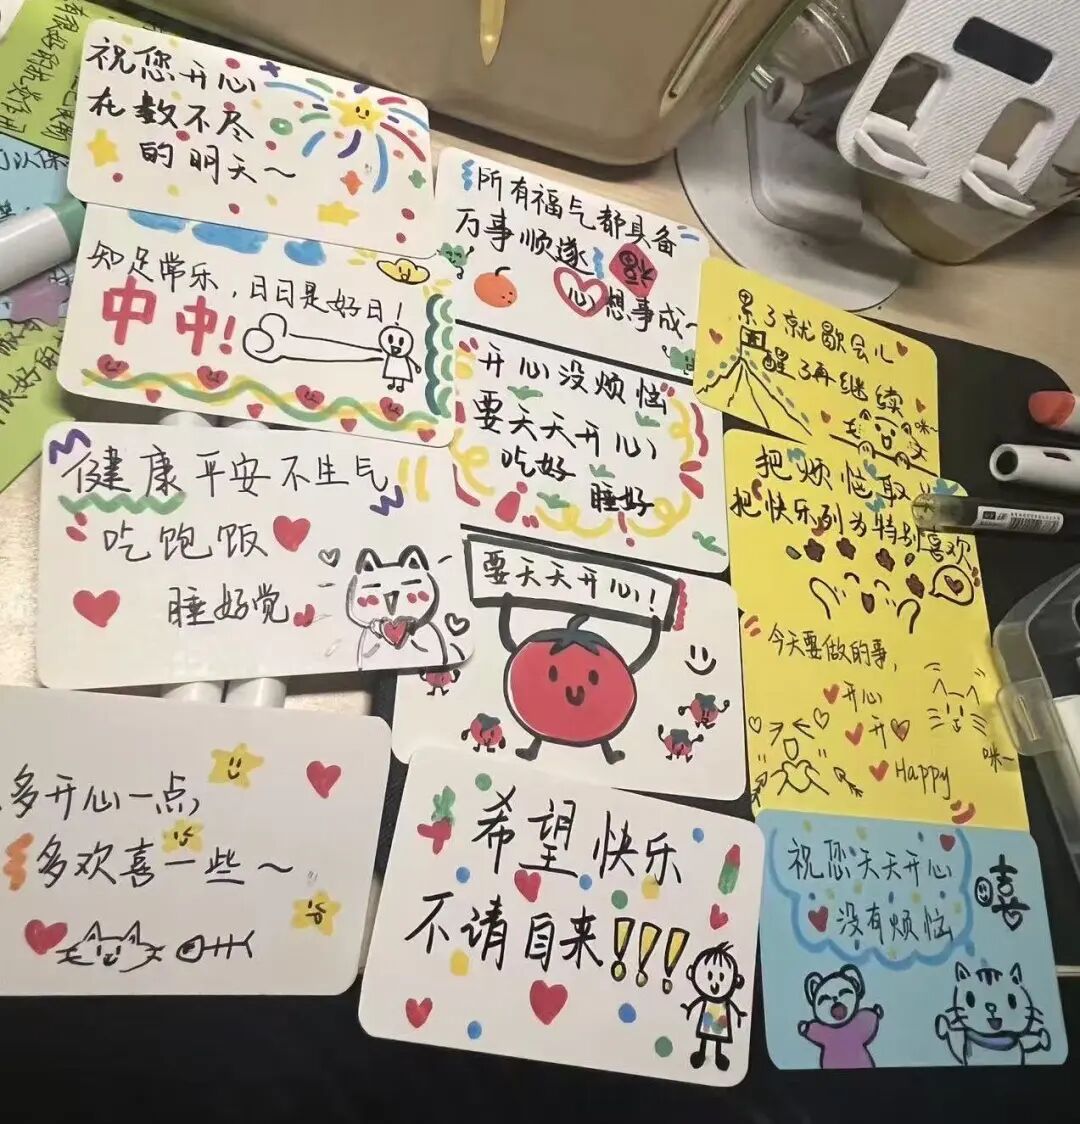 祝您开心
在数不尽
的明天～
知足常乐，日日是好日！
中中！
健康平安不生气
吃饱饭
睡好觉
多开心一点，
多欢喜一些～
所有福气都具备
万事顺遂
福
心想事成～
开心没烦恼
要天天开心
吃好
睡好
要天天开心！
希望快乐
不请自来!!!
累了就歇会儿
醒了再继续
咪~
把烦恼取
把快乐列为特别喜欢
今天要做的事，
开心
开
Happy
咪~
祝您天天开心
没有烦恼
喜